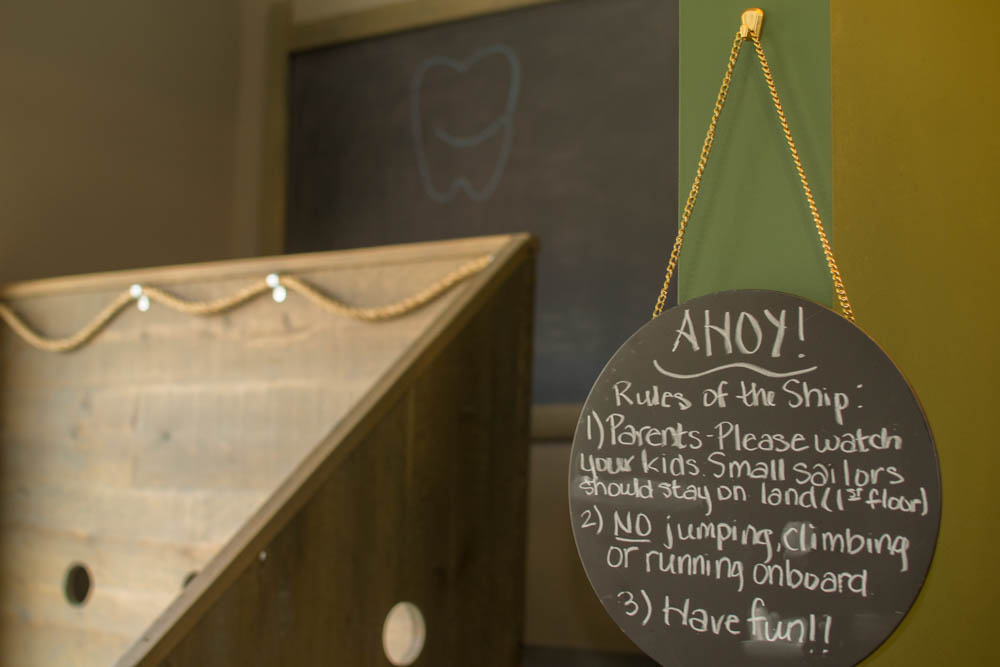 AHOY!
Rules of the Ship:
1) Parents-Please watch
your kids. Small sailors
should stay on land (1st floor)
2) NO jumping, climbing
or running onboard.
3) Have fun!!